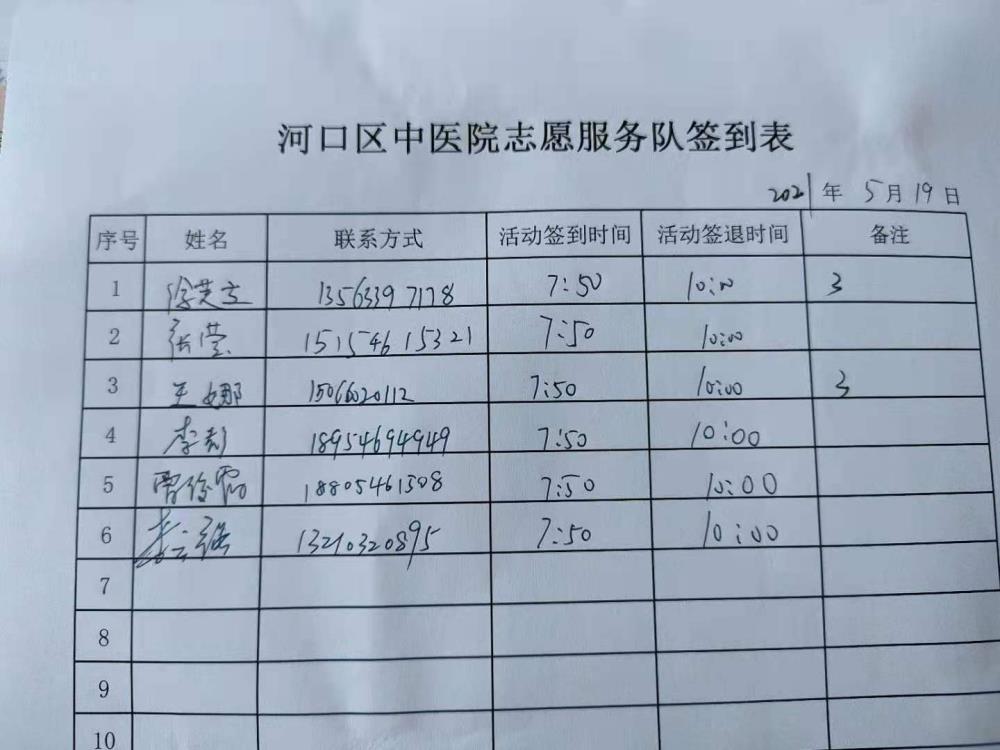 河口区中医院志愿服务队签到表
2021年 5月19日
序号 姓名 联系方式 活动签到时间 活动签退时间 备注
1 徐芝立 13563397178 7:50 10:00 3
2 张莹 15154615321 7:50 10:00
3 王娜 15066020112 7:50 10:00 3
4 李彭 18954694949 7:50 10:00
5 18805461508 7:50 10:00
6 13210320895 7:50 10:00
7
8
9
10